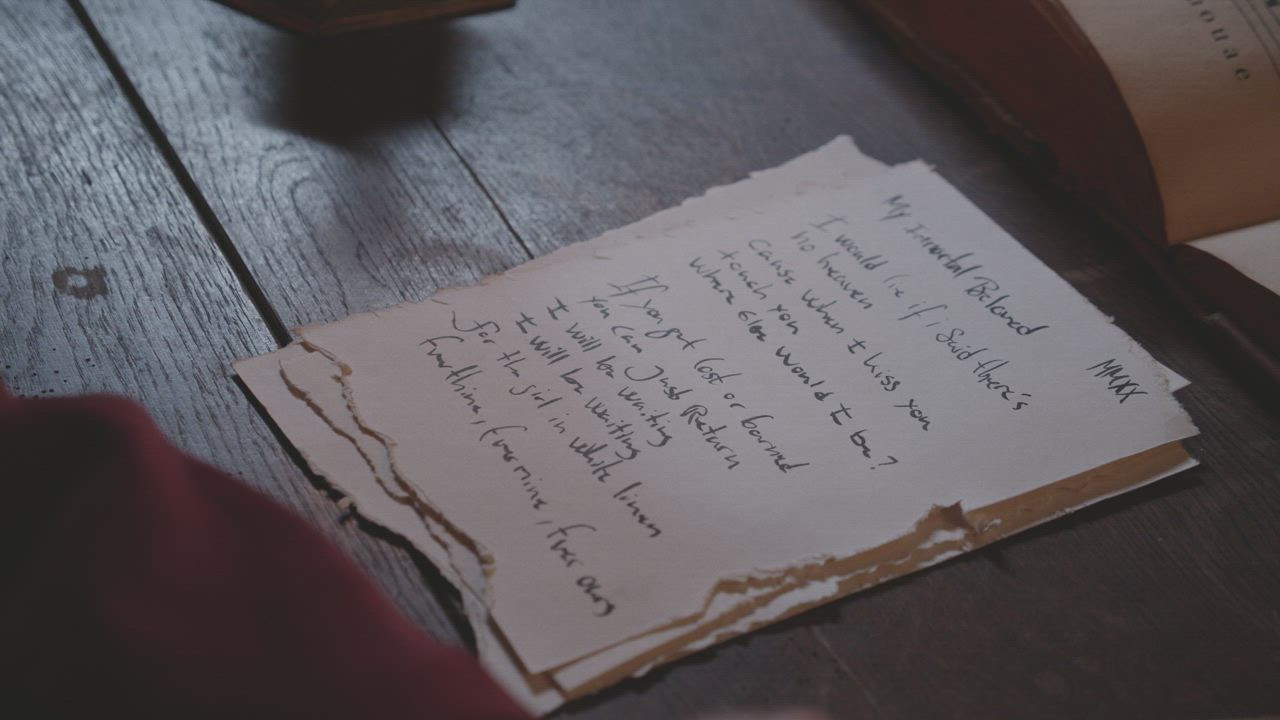 MMXX
My Immortal Beloved
I would lie if i said there's
no heaven
Cause when I kiss you
touch you
where else would I be?
If you get lost or borned
you can just Return
I will be waiting
I will be waiting
for the girl in white linen
Ever thine, Ever mine, Ever ours
ouae